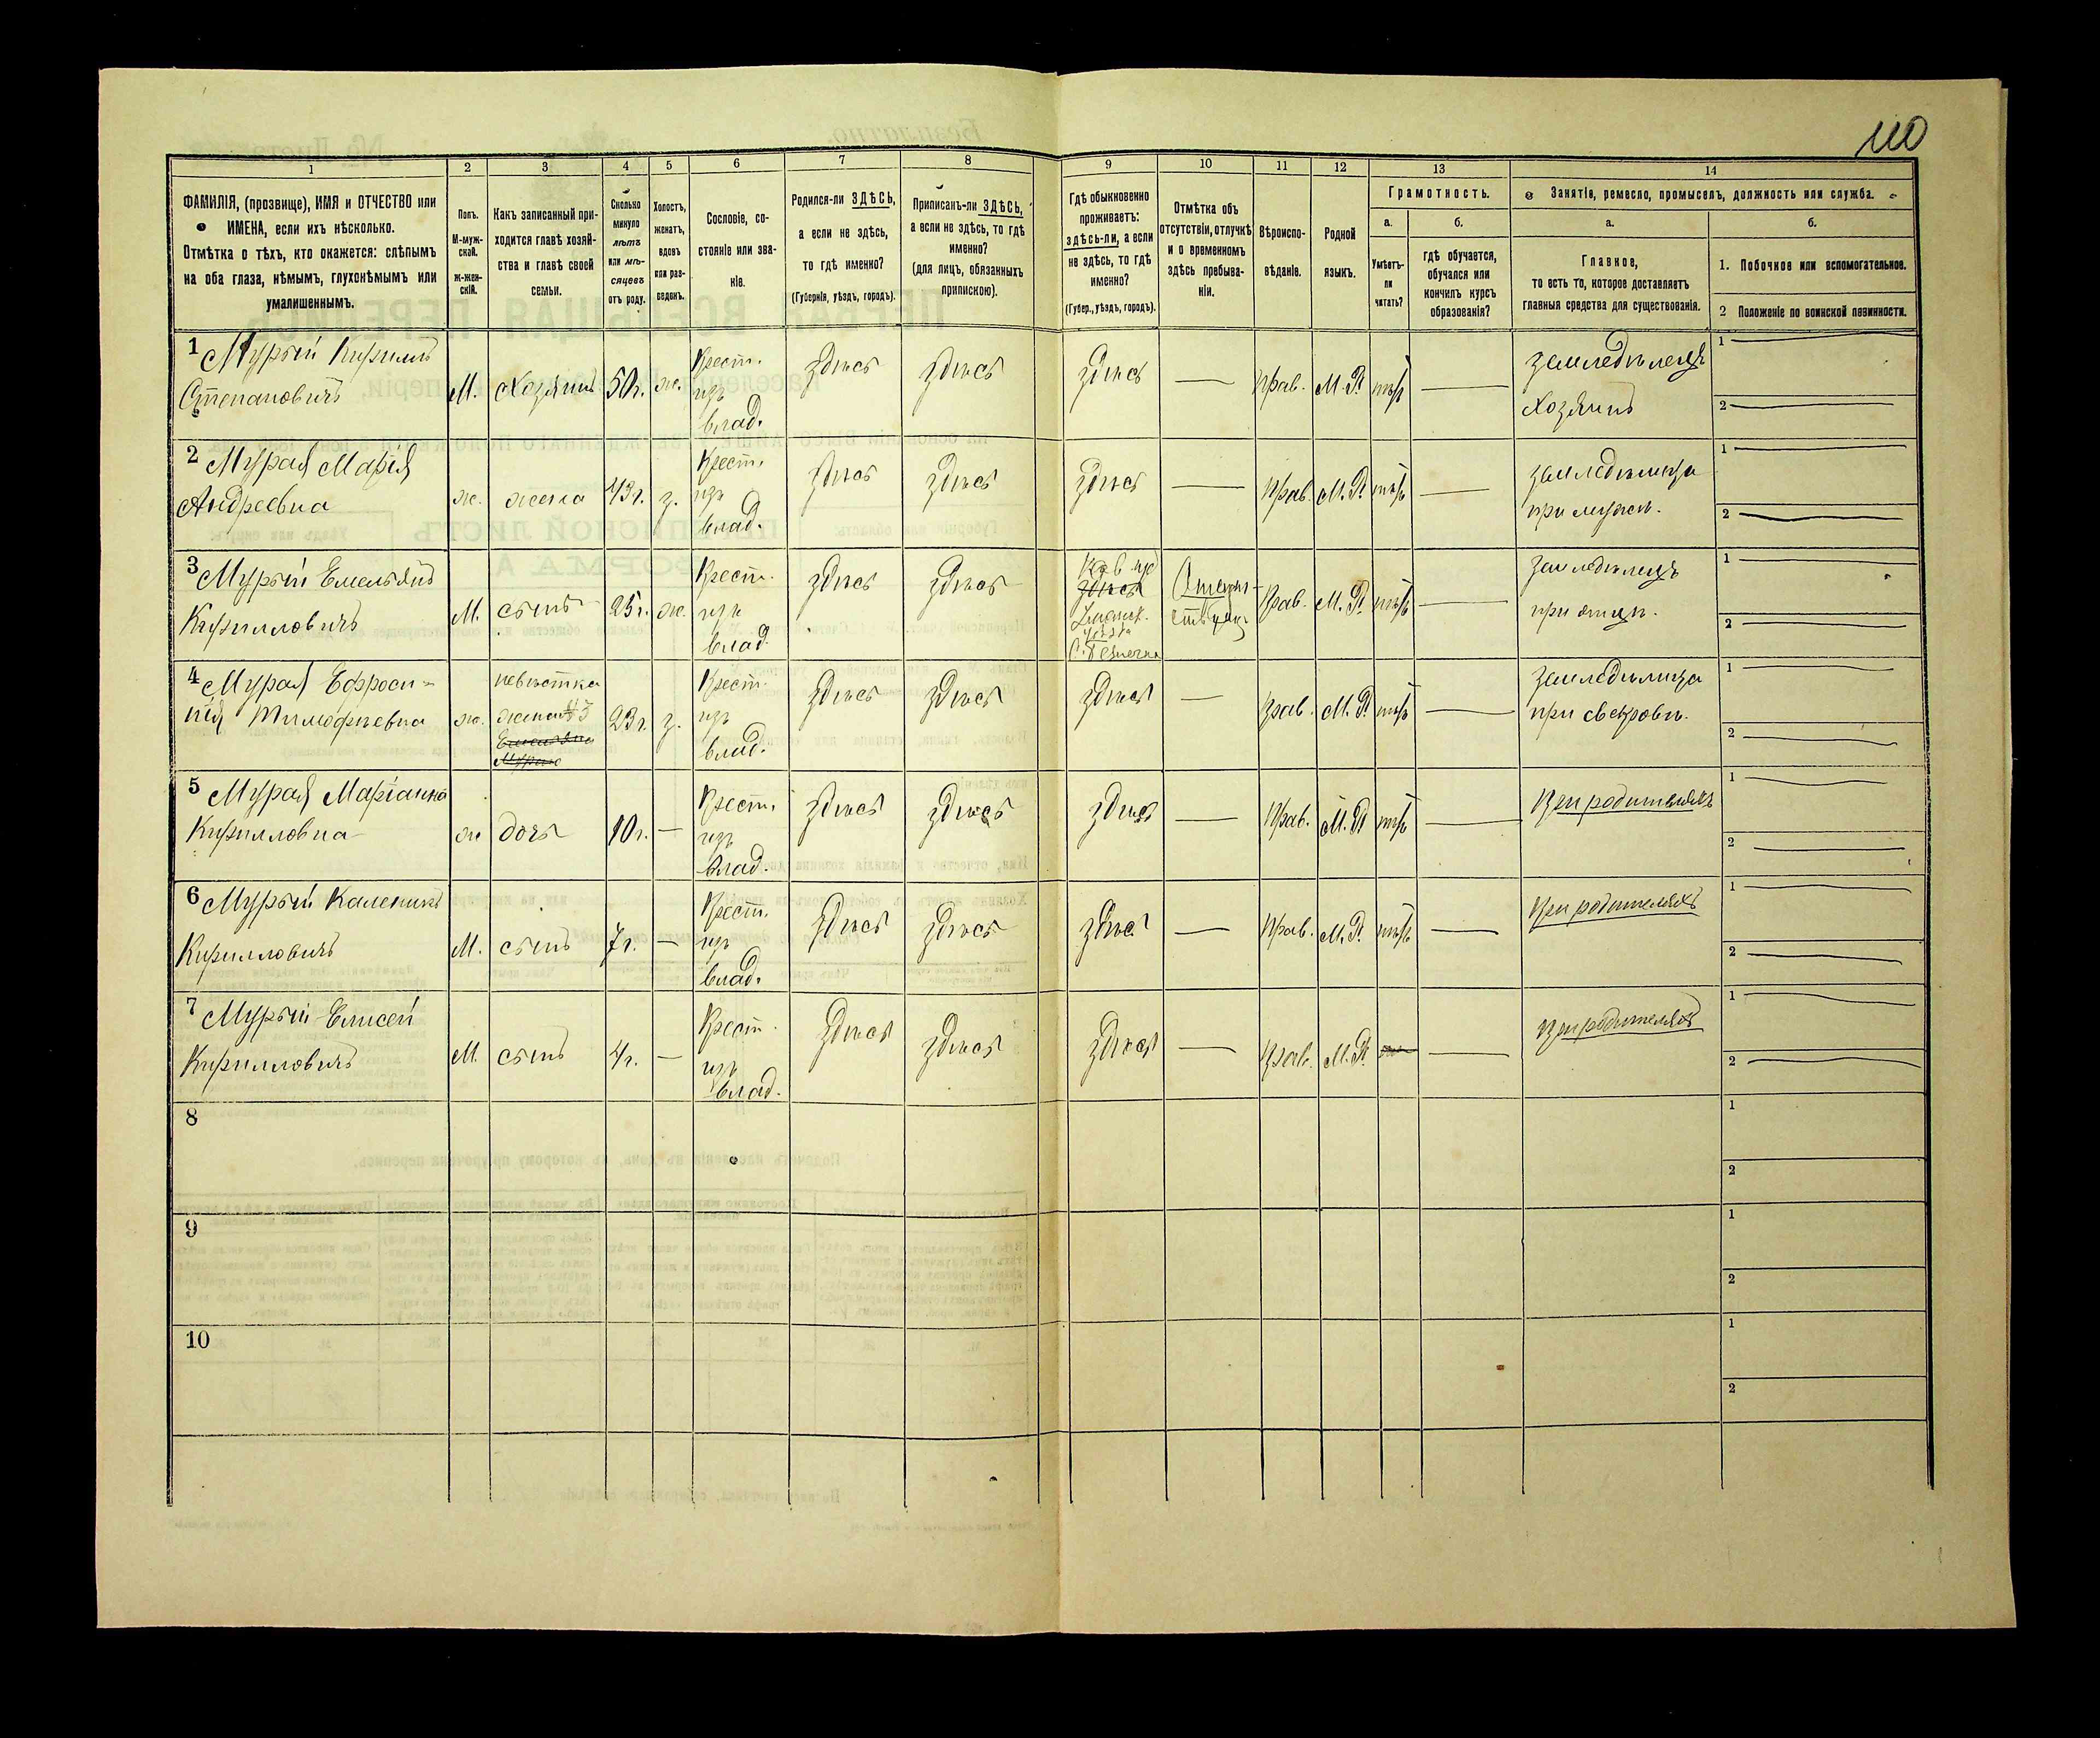 110
1
2
3
4
5
6
7
8
9
10
11
12
13
14
ФАМИЛІЯ, (прозвище), ИМЯ и ОТЧЕСТВО или
ИМЕНА, если ихъ нѣсколько.
Отмѣтка о тѣхъ, кто окажется: слѣпымъ
на оба глаза, нѣмымъ, глухонѣмымъ или
умалишеннымъ.
Полъ.
М-муж-
ской.
Ж-жен-
скій.
Какъ записанный при-
ходится главѣ хозяй-
ства и главѣ своей
семьи.
Сколько
минуло
лѣтъ
или мѣ-
сяцевъ
отъ роду.
Холостъ,
женатъ,
вдовъ
или раз-
веденъ.
Сословіе, со-
стояніе или зва-
ніе.
Родился-ли ЗДѢСЬ,
а если не здѣсь,
то гдѣ именно?
(Губернія, уѣздъ, городъ).
Приписанъ-ли ЗДѢСЬ,
а если не здѣсь, то гдѣ
именно?
(для лицъ, обязанныхъ
припискою).
Гдѣ обыкновенно
проживаетъ:
здѣсь-ли, а если
не здѣсь, то гдѣ
именно?
(Губер., уѣздъ, городъ).
Отмѣтка объ
отсутствіи, отлучкѣ
и о временномъ
здѣсь пребыва-
ніи.
Вѣроиспо-
вѣданіе.
Родной
языкъ.
Грамотность.
а.
Умѣетъ-
ли
читать?
б.
гдѣ обучается,
обучался или
кончилъ курсъ
образованія?
Занятіе, ремесло, промыселъ, должность или служба.
а.
Главное,
то есть то, которое доставляетъ
главныя средства для существованія.
б.
1. Побочное или вспомогательное.
2 Положеніе по воинской повинности.
1 Мурый Кириллъ
Степановичъ
М. Хозяинъ 50 г. ж.
Крест.
изъ
влад.
здѣсь здѣсь здѣсь — Прав. М.Р. нѣтъ —
земледѣлецъ
Хозяинъ
1
2
2 Мурая Марія
Андреевна
ж. жена 43 г. з.
Крест.
изъ
влад.
здѣсь здѣсь здѣсь — Прав. М.Р. нѣтъ —
земледѣлица
при мужѣ.
1
2
3 Мурый Емельянъ
Кирилловичъ
М. сынъ 25 г. ж.
Крест.
изъ
влад.
здѣсь здѣсь
здѣсь
уѣзда
Прав. М.Р. нѣтъ —
земледѣлецъ
при отцѣ.
1
2
4 Мурая Ефроси-
нія Тимофѣевна
ж.
невѣстка
жена №3
Емельяна
Мураго
23 г. з.
Крест.
изъ
влад.
здѣсь здѣсь здѣсь — Прав. М.Р. нѣтъ —
земледѣлица
при свекровѣ.
1
2
5 Мурая Маріанна
Кирилловна
ж дочь 10 г. —
Крест.
изъ
влад.
здѣсь здѣсь здѣсь — Прав. М.Р. нѣтъ —
При родителяхъ
1
2
6 Мурый Каленикъ
Кирилловичъ
М. сынъ 7 г. —
Крест.
изъ
влад.
здѣсь здѣсь здѣсь — Прав. М.Р. нѣтъ —
При родителяхъ
1
2
7 Мурый Елисей
Кирилловичъ
М. сынъ 4 г. —
Крест.
изъ
влад.
здѣсь здѣсь здѣсь — Прав. М.Р. —
При родителяхъ
1
2
8
1
2
9
1
2
10
1
2